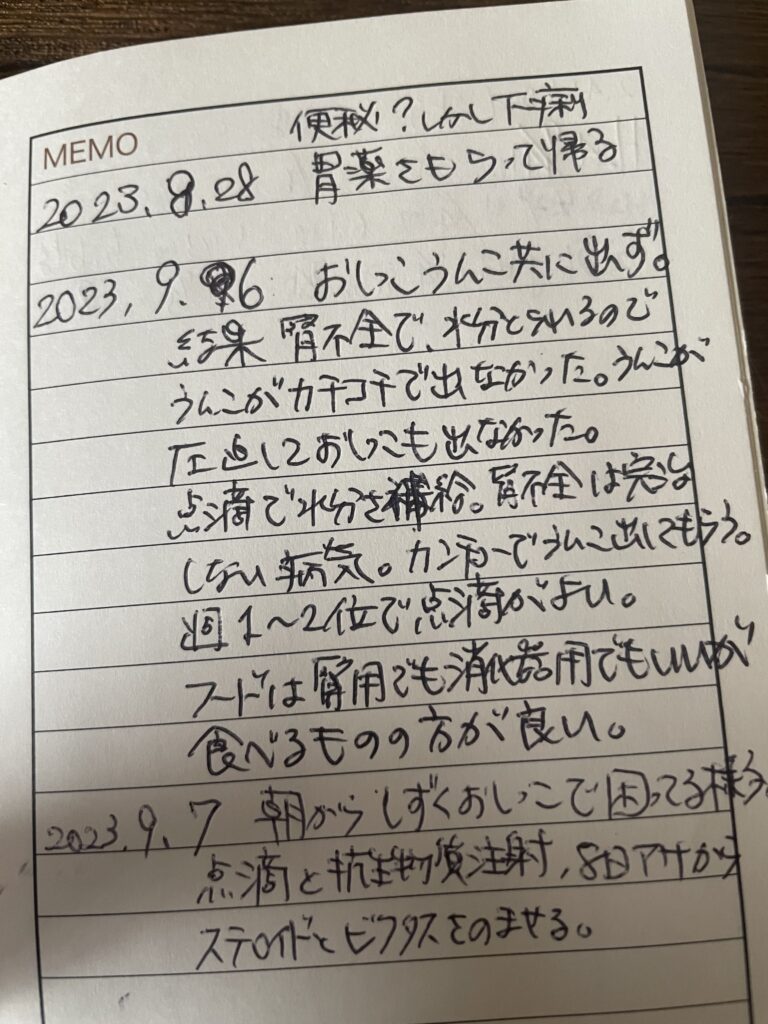 MEMO
便秘?しかし下痢
2023.8.28 胃薬をもらって帰る
2023.9.6 おしっこうんこ共に出ず。
結果 腎不全で、水分とられるので
うんこがカチコチで出なかった。うんこが
圧迫しておしっこも出なかった。
点滴で水分を補給。腎不全は完治
しない病気。カンチョーでうんこ出してもらう。
週1〜2位で点滴がよい。
フードは腎用でも消化器用でもいいが
食べるものの方が良い。
2023.9.7 朝からしずくおしっこで困ってる様子。
点滴と抗生物質注射、8日アサから
ステロイドとビフタスをのませる。